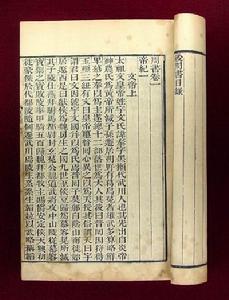 周書目錄
周書卷一
帝紀一
文帝上
太祖文皇帝姓宇文氏諱泰字黑獺代武川人也其先出自炎帝
神農氏爲黃帝所滅子孫遯居朔野有葛烏菟者雄武多算略鮮
卑慕之奉以爲主遂總十二部落世爲大人其後曰普回因狩得
玉璽三紐有文曰皇帝璽普回心異之以爲天授其俗謂天曰宇
謂君曰文因號宇文國并以爲氏焉普回子莫那自陰山南徙始
居遼西是曰獻侯爲魏舅生之國九世至侯豆歸爲慕容晃所滅
其子陵仕燕拜駙馬都尉封玄菟公魏道武將攻中山陵從慕容
寶禦之寶敗陵率甲騎五百歸魏拜都牧主賜爵安定侯天興初
徙豪傑於代都陵隨例遷武川焉陵生系系生韜並以武略稱韜